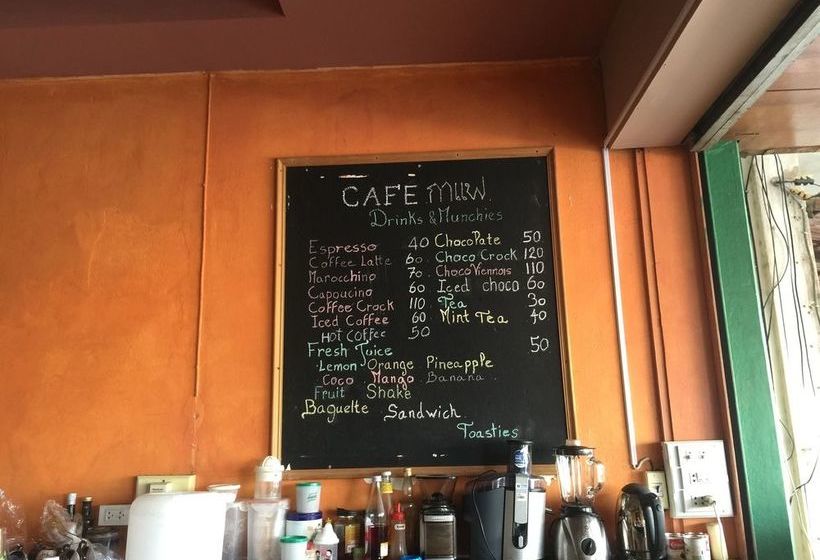 CAFE กาแฟ
Drinks & Munchies
Espresso 40
Coffee Latte 60
Marocchino 70
Capoucino 60
Coffee Crock 110
Iced Coffee 60
Hot Coffee 50
ChocoPate 50
Choco Crock 120
Choco Viennois 110
Iced choco 60
Tea 30
Mint Tea 40
50
Fresh Juice
Lemon Orange Pineapple
Coco Mango Banana
Fruit Shake
Baguette Sandwich
Toasties